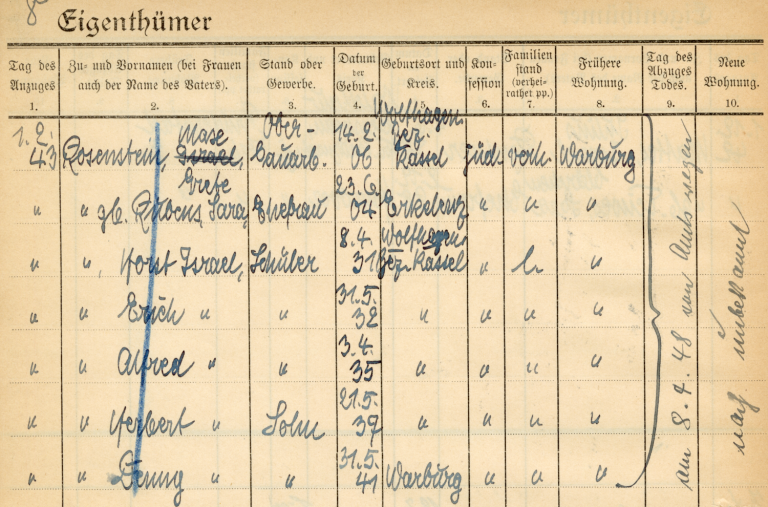 Eigenthümer
Tag des Anzuges 1. Zu- und Vornamen (bei Frauen auch der Name des Vaters). 2. Stand oder Gewerbe. 3. Datum der Geburt. 4. Geburtsort und Kreis. 5. Kon- fession 6. Familien stand (verhei- rathet pp.) 7. Frühere Wohnung. 8. Tag des Abzuges Todes. 9. Neue Wohnung. 10.
1.2. 43 Rosenstein, Israel, Ober- Bauarb. 14.2. 06 Wolfhagen Bez. Kassel jüd. verh. Warburg
" " Grete gb. Rubens, Sara, Ehefrau 23.6. 04 Erkelenz " " "
" ", Horst Israel, Schüler 8.4. 31 Wolfhagen, Bez. Kassel " l. "
" " Erich " " 31.5. 32 " " " "
" " Alfred " " 3.4. 35 " " " "
" " Herbert " Sohn 21.5. 37 " " " "
" " Denny " " 31.5. 41 Warburg " " "
am 8.4.48 von Amts wegen
nach unbekannt